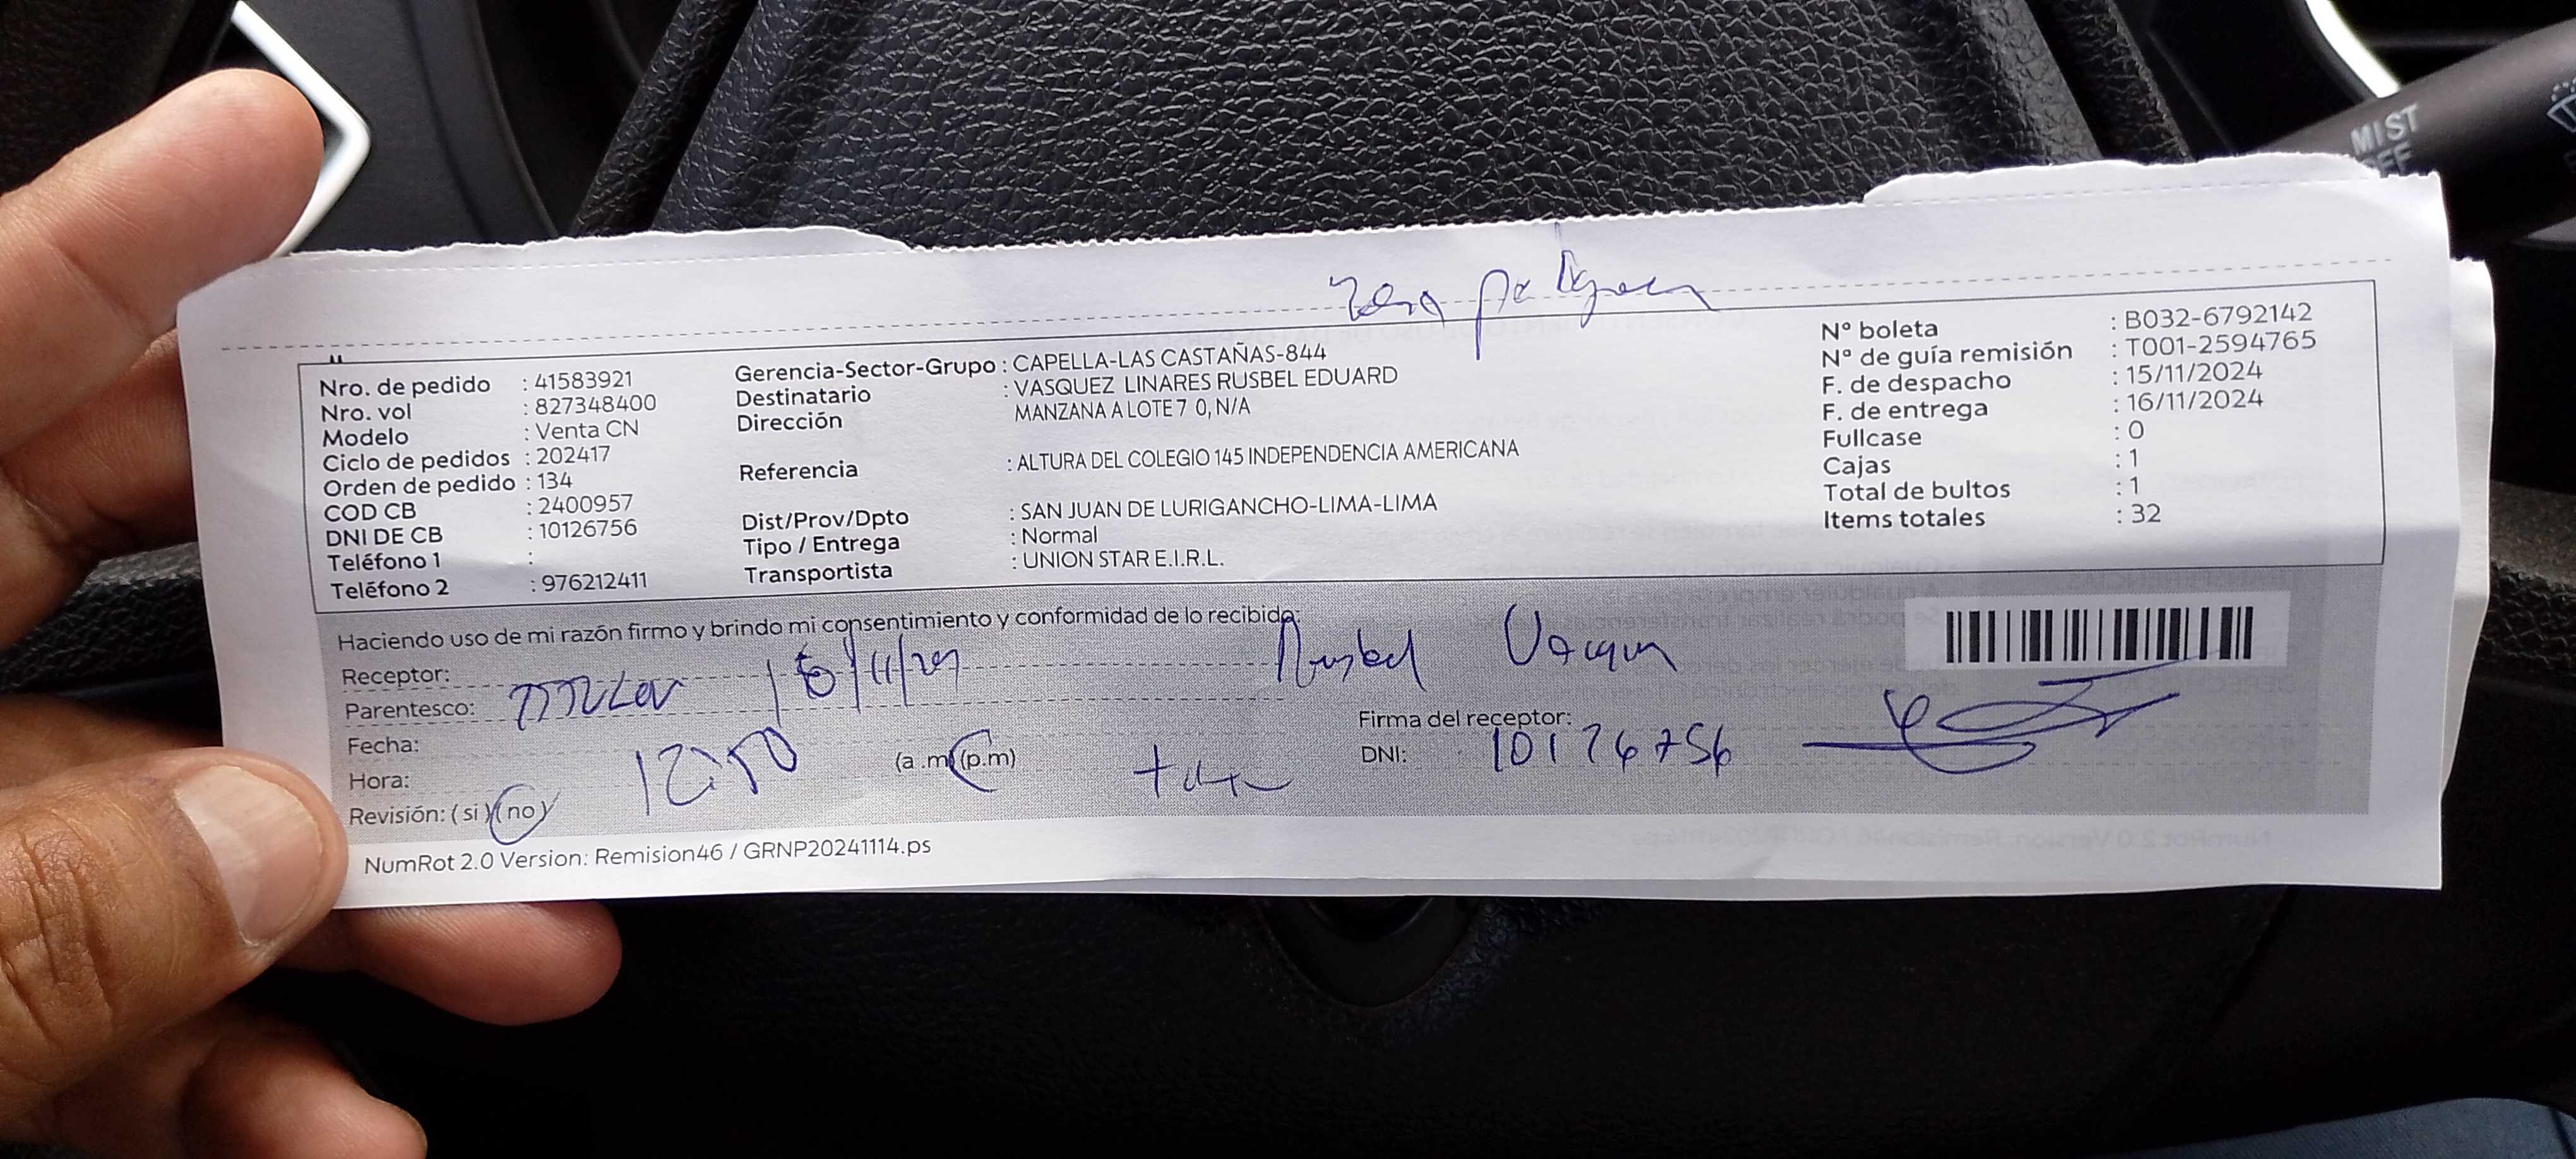 MIST
OFF
Nro. de pedido : 41583921
Nro. vol : 827348400
Modelo : Venta CN
Ciclo de pedidos : 202417
Orden de pedido : 134
COD CB : 2400957
DNI DE CB : 10126756
Teléfono 1 :
Teléfono 2 : 976212411
Gerencia-Sector-Grupo : CAPELLA-LAS CASTAÑAS-844
Destinatario : VASQUEZ LINARES RUSBEL EDUARD
Dirección MANZANA A LOTE 7 0, N/A
Referencia : ALTURA DEL COLEGIO 145 INDEPENDENCIA AMERICANA
Dist/Prov/Dpto : SAN JUAN DE LURIGANCHO-LIMA-LIMA
Tipo / Entrega : Normal
Transportista : UNION STAR E.I.R.L.
Nº boleta : B032-6792142
Nº de guía remisión : T001-2594765
F. de despacho : 15/11/2024
F. de entrega : 16/11/2024
Fullcase : 0
Cajas : 1
Total de bultos : 1
Items totales : 32
Haciendo uso de mi razón firmo y brindo mi consentimiento y conformidad de lo recibido:
Receptor: Rusbel
Parentesco:
Fecha:
Hora: (a .m) (p.m)
Revisión: ( si ) ( no )
Firma del receptor:
DNI:
NumRot 2.0 Version: Remision46 / GRNP20241114.ps